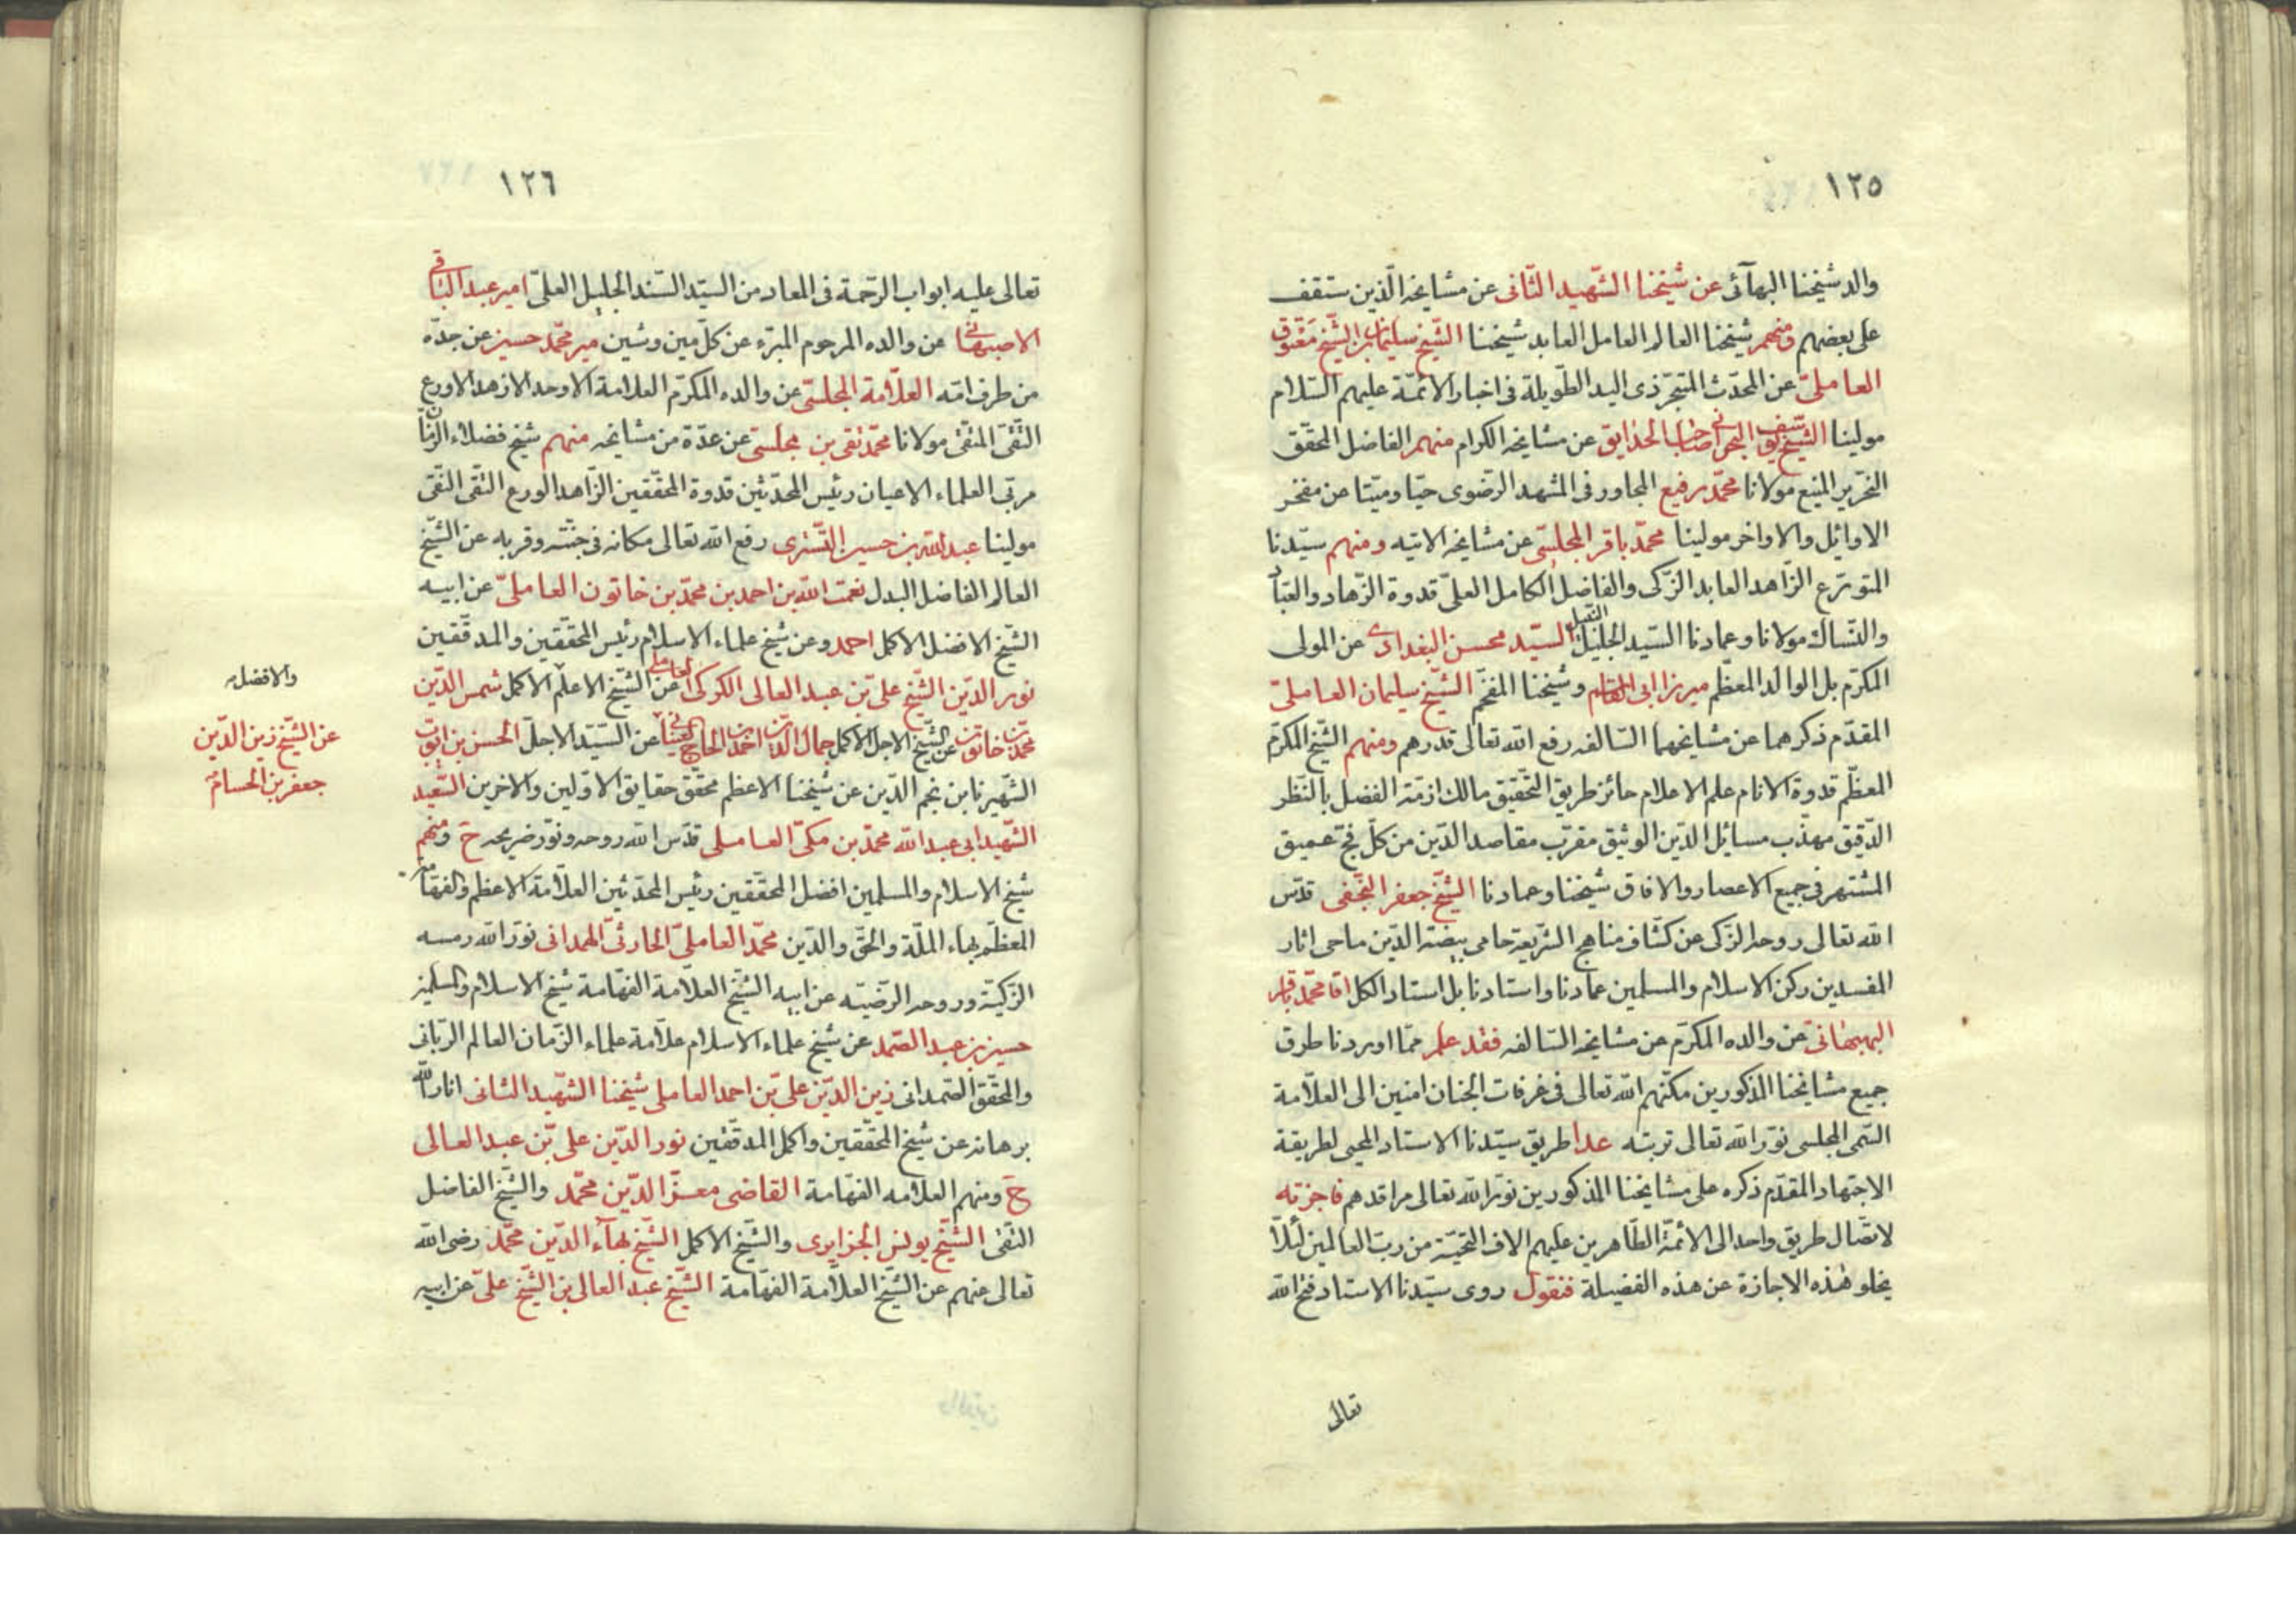 ١٢٥
والد شيخنا البهآئى عن شيخنا الشّهيد الثّانى عن مشايخه الّذين ستقف
على بعضهم ومنهم شيخنا العالم العامل العابد شيخنا الشّيخ سليمان بن الشّيخ معتوق
العاملىّ عن المحدّث المتبحّر ذى اليد الطّويلة فى اخبار الائمّة عليهم السّلام
مولينا الشّيخ يوسف البحرانى صاحب الحدايق عن مشايخه الكرام منهم الفاضل المحقّق
النحّرير المنيع مولانا محمّد رفيع المجاور فى المشهد الرّضوى حيّا وميّتا عن مفخر
الاوائل والاواخر مولينا محمّد باقر المجلسّى عن مشايخه الاتيه ومنهم سيّدنا
المتورّع الزّاهد العابد الزّكى والفاضل الكامل العلىّ قدوة الزّهاد والعبّاد
والنّساك مولانا وعمادنا السّيد الجليل النّبيل السيّد محسن البغدادى عن المولى
المكرّم بل الوالد المعظّم ميرزا ابى القاسم وشيخنا المفخّم الشّيخ سليمان العاملىّ
المقدّم ذكرهما عن مشايخهما السّالفه رفع الله تعالى قدرهم ومنهم الشّيخ المكرّم
المعظّم قدوة الانام علم الاعلام حائز طريق التّحقيق مالك ازمّة الفضل بالنّظر
الدّقيق مهذّب مسائل الدّين الوثيق مقرّب مقاصد الدّين من كلّ فجّ عميق
المشتهر فى جميع الاعصار والافاق شيخنا وعمادنا الشّيخ جعفر النّجفى قدّس
الله تعالى روحه الزّكى عن كشّاف مناهج الشّريعة حامى بيضة الدّين ماحى اثار
المفسدين ركن الاسلام والمسلمين عمادنا واستادنا بل استاد الكل اقا محمّد باقر
البهبهانىّ عن والده المكرّم عن مشايخه السّالفه فقد علم ممّا اوردنا طرق
جميع مشايخنا المذكورين مكّنهم الله تعالى فى غرفات الجنان امنين الى العلّامة
السّمى المجلسى نوّر الله تعالى تربته عدا طريق سيّدنا الاستاد المحيى لطريقة
الاجتهاد المقدّم ذكره على مشايخنا المذكورين نوّر الله تعالى مراقدهم فاجزته
لاتّصال طريق واحد الى الائمّة الطّاهرين عليهم الاف التحيّة من ربّ العالمين لئلّا
يخلو هذه الاجازة عن هذه الفضيلة فنقول روى سيّدنا الاستاد فتح الله
تعالى
١٢٦
تعالى عليه ابواب الرّحمة فى المعاد من السيّد السّند الجليل العلىّ امير عبد الباقى
الاصبهانى عن والده المرحوم المبرّء عن كلّ مين وشين مير محمّد حسين عن جدّه
من طرف امّه العلّامة المجلسّى عن والده المكرّم العلامة الاوحد الازهد الاورع
التّقىّ المتّقى مولانا محمّد تقى بن مجلسىّ عن عدّة من مشايخه منهم شيخ فضلاء الزّمان
مربّى العلماء الاعيان رئيس المحدّثين قدوة المحقّقين الزّاهد الورع التّقى النّقى
مولينا عبد الله بن حسين التّسترى رفع الله تعالى مكانه فى جنّته وقربه عن الشّيخ
العالم الفاضل البدل نعمت الله بن احمد بن محمّد بن خاتون العاملىّ عن ابيه
الشّيخ الافضل الاكمل احمد وعن شيخ علماء الاسلام رئيس المحقّقين والمدقّقين
نور الدّين الشّيخ علىّ بن عبد العالى الكركى العاملى عن الشّيخ الاعلم الاكمل شمس الدّين
محمّد بن خاتون عن الشّيخ الاجل الاكمل جمال الدّين احمد بن الحاج العينانى عن السيّد الاجلّ الحسن بن ايّوب
الشّهير بابن نجم الدّين عن شيخنا الاعظم محقّق حقايق الاوّلين والاخرين السّعيد
الشّهيد ابى عبد الله محمّد بن مكىّ العاملى قدّس الله روحه ونوّر ضريحه ح ومنهم
شيخ الاسلام والمسلمين افضل المحقّقين رئيس المحدّثين العلّامة الاعظم والفهّامة
المعظّم بهاء الملّة والحقّ والدّين محمّد العاملىّ الحارثىّ الهمدانى نوّر الله رمسه
الزّكيّة وروحه الرضيّه عن ابيه الشّيخ العلّامة الفهّامة شيخ الاسلام والمسلمين
حسين بن عبد الصّمد عن شيخ علماء الاسلام علّامة علماء الزّمان العالم الرّبّانى
والمحقّق الصّمدانى زين الدّين علىّ بن احمد العاملى شيخنا الشّهيد الثانى انار الله
برهانه عن شيخ المحقّقين واكمل المدقّقين نور الدّين على بّن عبد العالى
ح ومنهم العلّامه الفهّامة القاضى معزّ الدّين محمّد والشّيخ الفاضل
التّقى الشّيخ يونس الجزايرى والشّيخ الاكمل الشّيخ بهآء الدّين محمّد رضى الله
تعالى عنهم عن الشّيخ العلّامة الفهّامة الشّيخ عبد العالى بن الشّيخ علىّ عن ابيه
والافضل
عن الشّيخ زين الدّين
جعفر بن الحسام